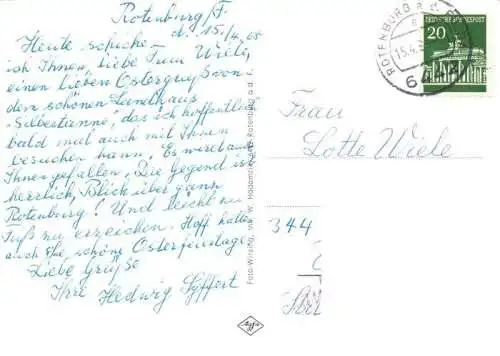 Rotenburg/F.
d. 15./4. 68
Heute schicke
ich Ihnen, liebe Frau Wiele,
einen lieben Ostergruß von
dem schönen Landhaus
"Silbertanne", das ich hoffentlich
bald mal auch mit Ihnen
besuchen kann. Es wird auch
Ihnen gefallen. Die Gegend ist
herrlich, Blick über ganz
Rotenburg! Und leicht zu
Fuß zu erreichen. Hoff. hatten
auch Sie schöne Osterfeiertage.
Liebe Grüße
Ihre Hedwig Syffert
Foto-Wirsing, Inh. W.
Agfa
ROTENBURG
15.4.
DEUTSCHE BUNDESPOST
20
Frau
Lotte Wiele
344